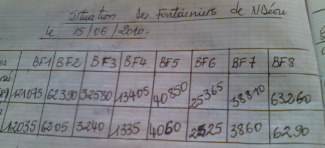 Situation des Fontainiers de N'Déou
le 15/06/2010.
BF1 BF2 BF3 BF4 BF5 BF6 BF7 BF8
121075 62390 32580 13405 40850 25365 38810 63260
12035 6205 3240 1335 4060 2525 3860 6290